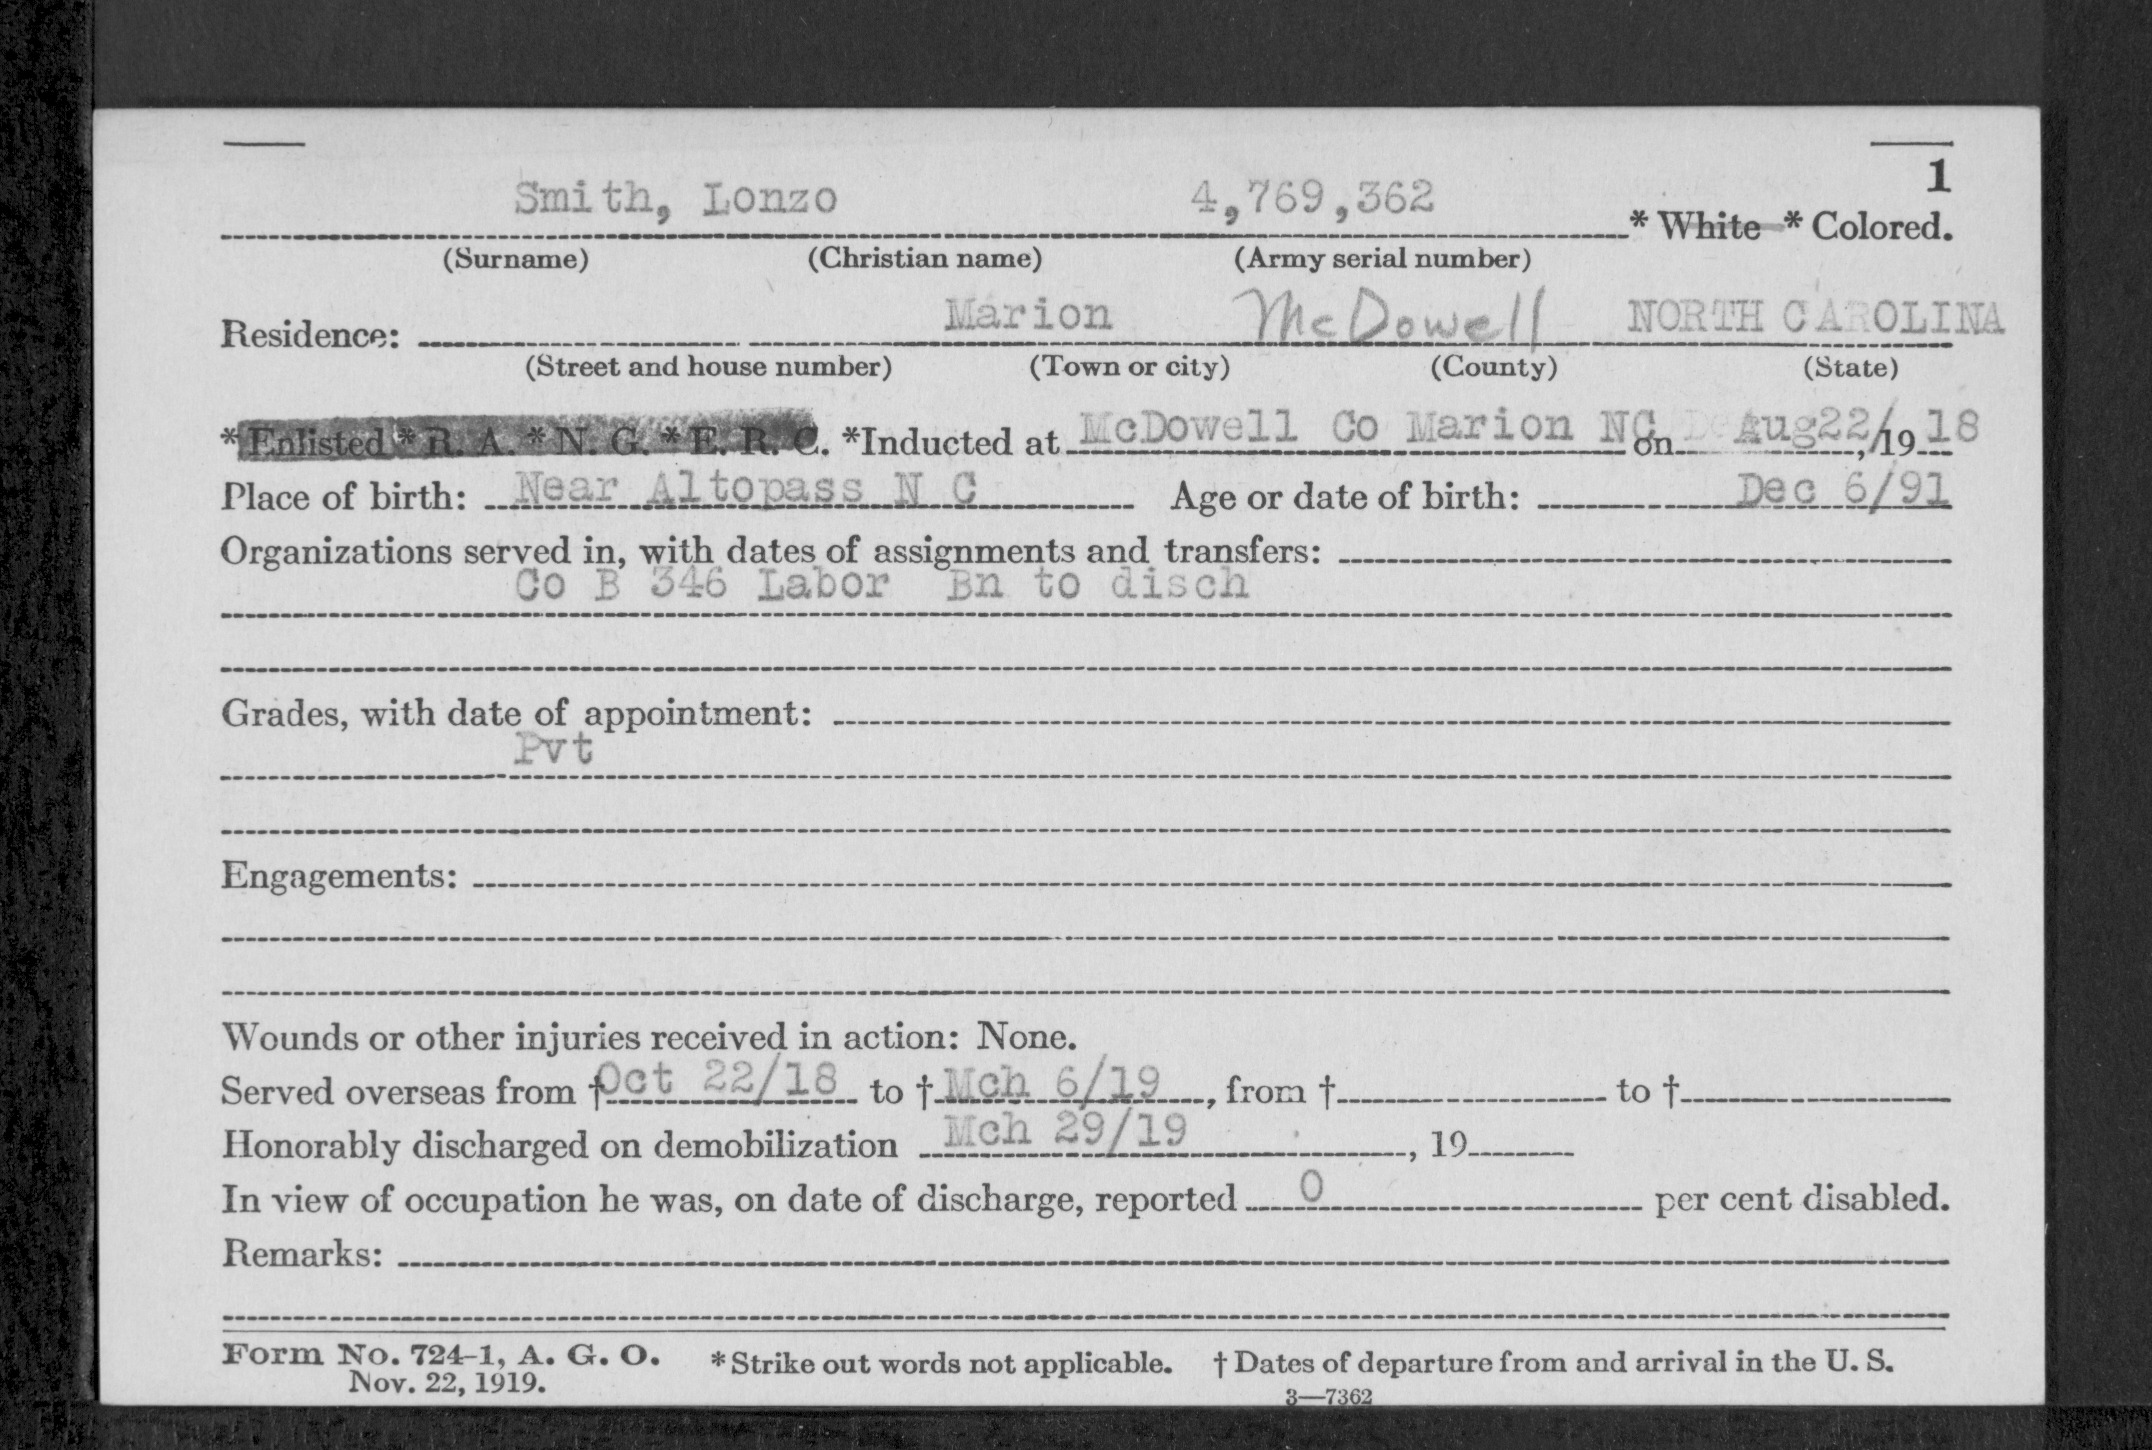 1
Smith, Lonzo 4,769,362 * White * Colored.
(Surname) (Christian name) (Army serial number)
Residence: Marion McDowell NORTH CAROLINA
(Street and house number) (Town or city) (County) (State)
* Enlisted * R. A. * N. G. * E. R. C. *Inducted at McDowell Co Marion NC on Aug22/, 19 18
Place of birth: Near Altopass N C Age or date of birth: Dec 6/91
Organizations served in, with dates of assignments and transfers:
Co B 346 Labor Bn to disch
Grades, with date of appointment:
Pvt
Engagements:
Wounds or other injuries received in action: None.
Served overseas from † Oct 22/18 to † Mch 6/19, from † to †
Honorably discharged on demobilization Mch 29/19, 19
In view of occupation he was, on date of discharge, reported 0 per cent disabled.
Remarks:
Form No. 724-1, A. G. O. * Strike out words not applicable. † Dates of departure from and arrival in the U. S.
Nov. 22, 1919.
3—7362